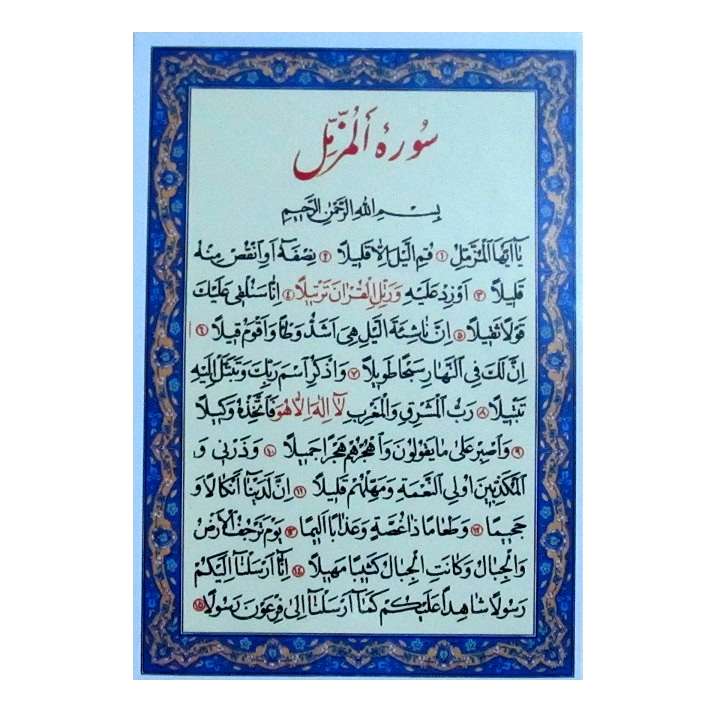 سُورهٔ اَلْمُزَّمِّل
بِسْمِ اللهِ الرَّحْمٰنِ الرَّحِيمِ
يَآ اَيُّهَا الْمُزَّمِّلُ ١ قُمِ الَّيْلَ اِلَّا قَلِيلًا ٢ نِصْفَهٗٓ اَوِ انْقُصْ مِنْهُ
قَلِيلًا ٣ اَوْ زِدْ عَلَيْهِ وَرَتِّلِ الْقُرْاٰنَ تَرْتِيلًا ٤ اِنَّا سَنُلْقِي عَلَيْكَ
قَوْلًا ثَقِيلًا ٥ اِنَّ نَاشِئَةَ الَّيْلِ هِيَ اَشَدُّ وَطْأً وَاَقْوَمُ قِيلًا ٦
اِنَّ لَكَ فِي النَّهَارِ سَبْحًا طَوِيلًا ٧ وَاذْكُرِ اسْمَ رَبِّكَ وَتَبَتَّلْ اِلَيْهِ
تَبْتِيلًا ٨ رَبُّ الْمَشْرِقِ وَالْمَغْرِبِ لَآ اِلٰهَ اِلَّا هُوَ فَاتَّخِذْهُ وَكِيلًا
٩ وَاصْبِرْ عَلٰى مَا يَقُولُونَ وَاهْجُرْهُمْ هَجْرًا جَمِيلًا ١٠ وَذَرْنِي وَ
الْمُكَذِّبِينَ اُولِي النَّعْمَةِ وَمَهِّلْهُمْ قَلِيلًا ١١ اِنَّ لَدَيْنَآ اَنْكَالًا وَ
جَحِيمًا ١٢ وَطَعَامًا ذَا غُصَّةٍ وَعَذَابًا اَلِيمًا ١٣ يَوْمَ تَرْجُفُ الْاَرْضُ
وَالْجِبَالُ وَكَانَتِ الْجِبَالُ كَثِيبًا مَهِيلًا ١٤ اِنَّآ اَرْسَلْنَآ اِلَيْكُمْ
رَسُولًا شَاهِدًا عَلَيْكُمْ كَمَآ اَرْسَلْنَآ اِلٰى فِرْعَوْنَ رَسُولًا ١٥